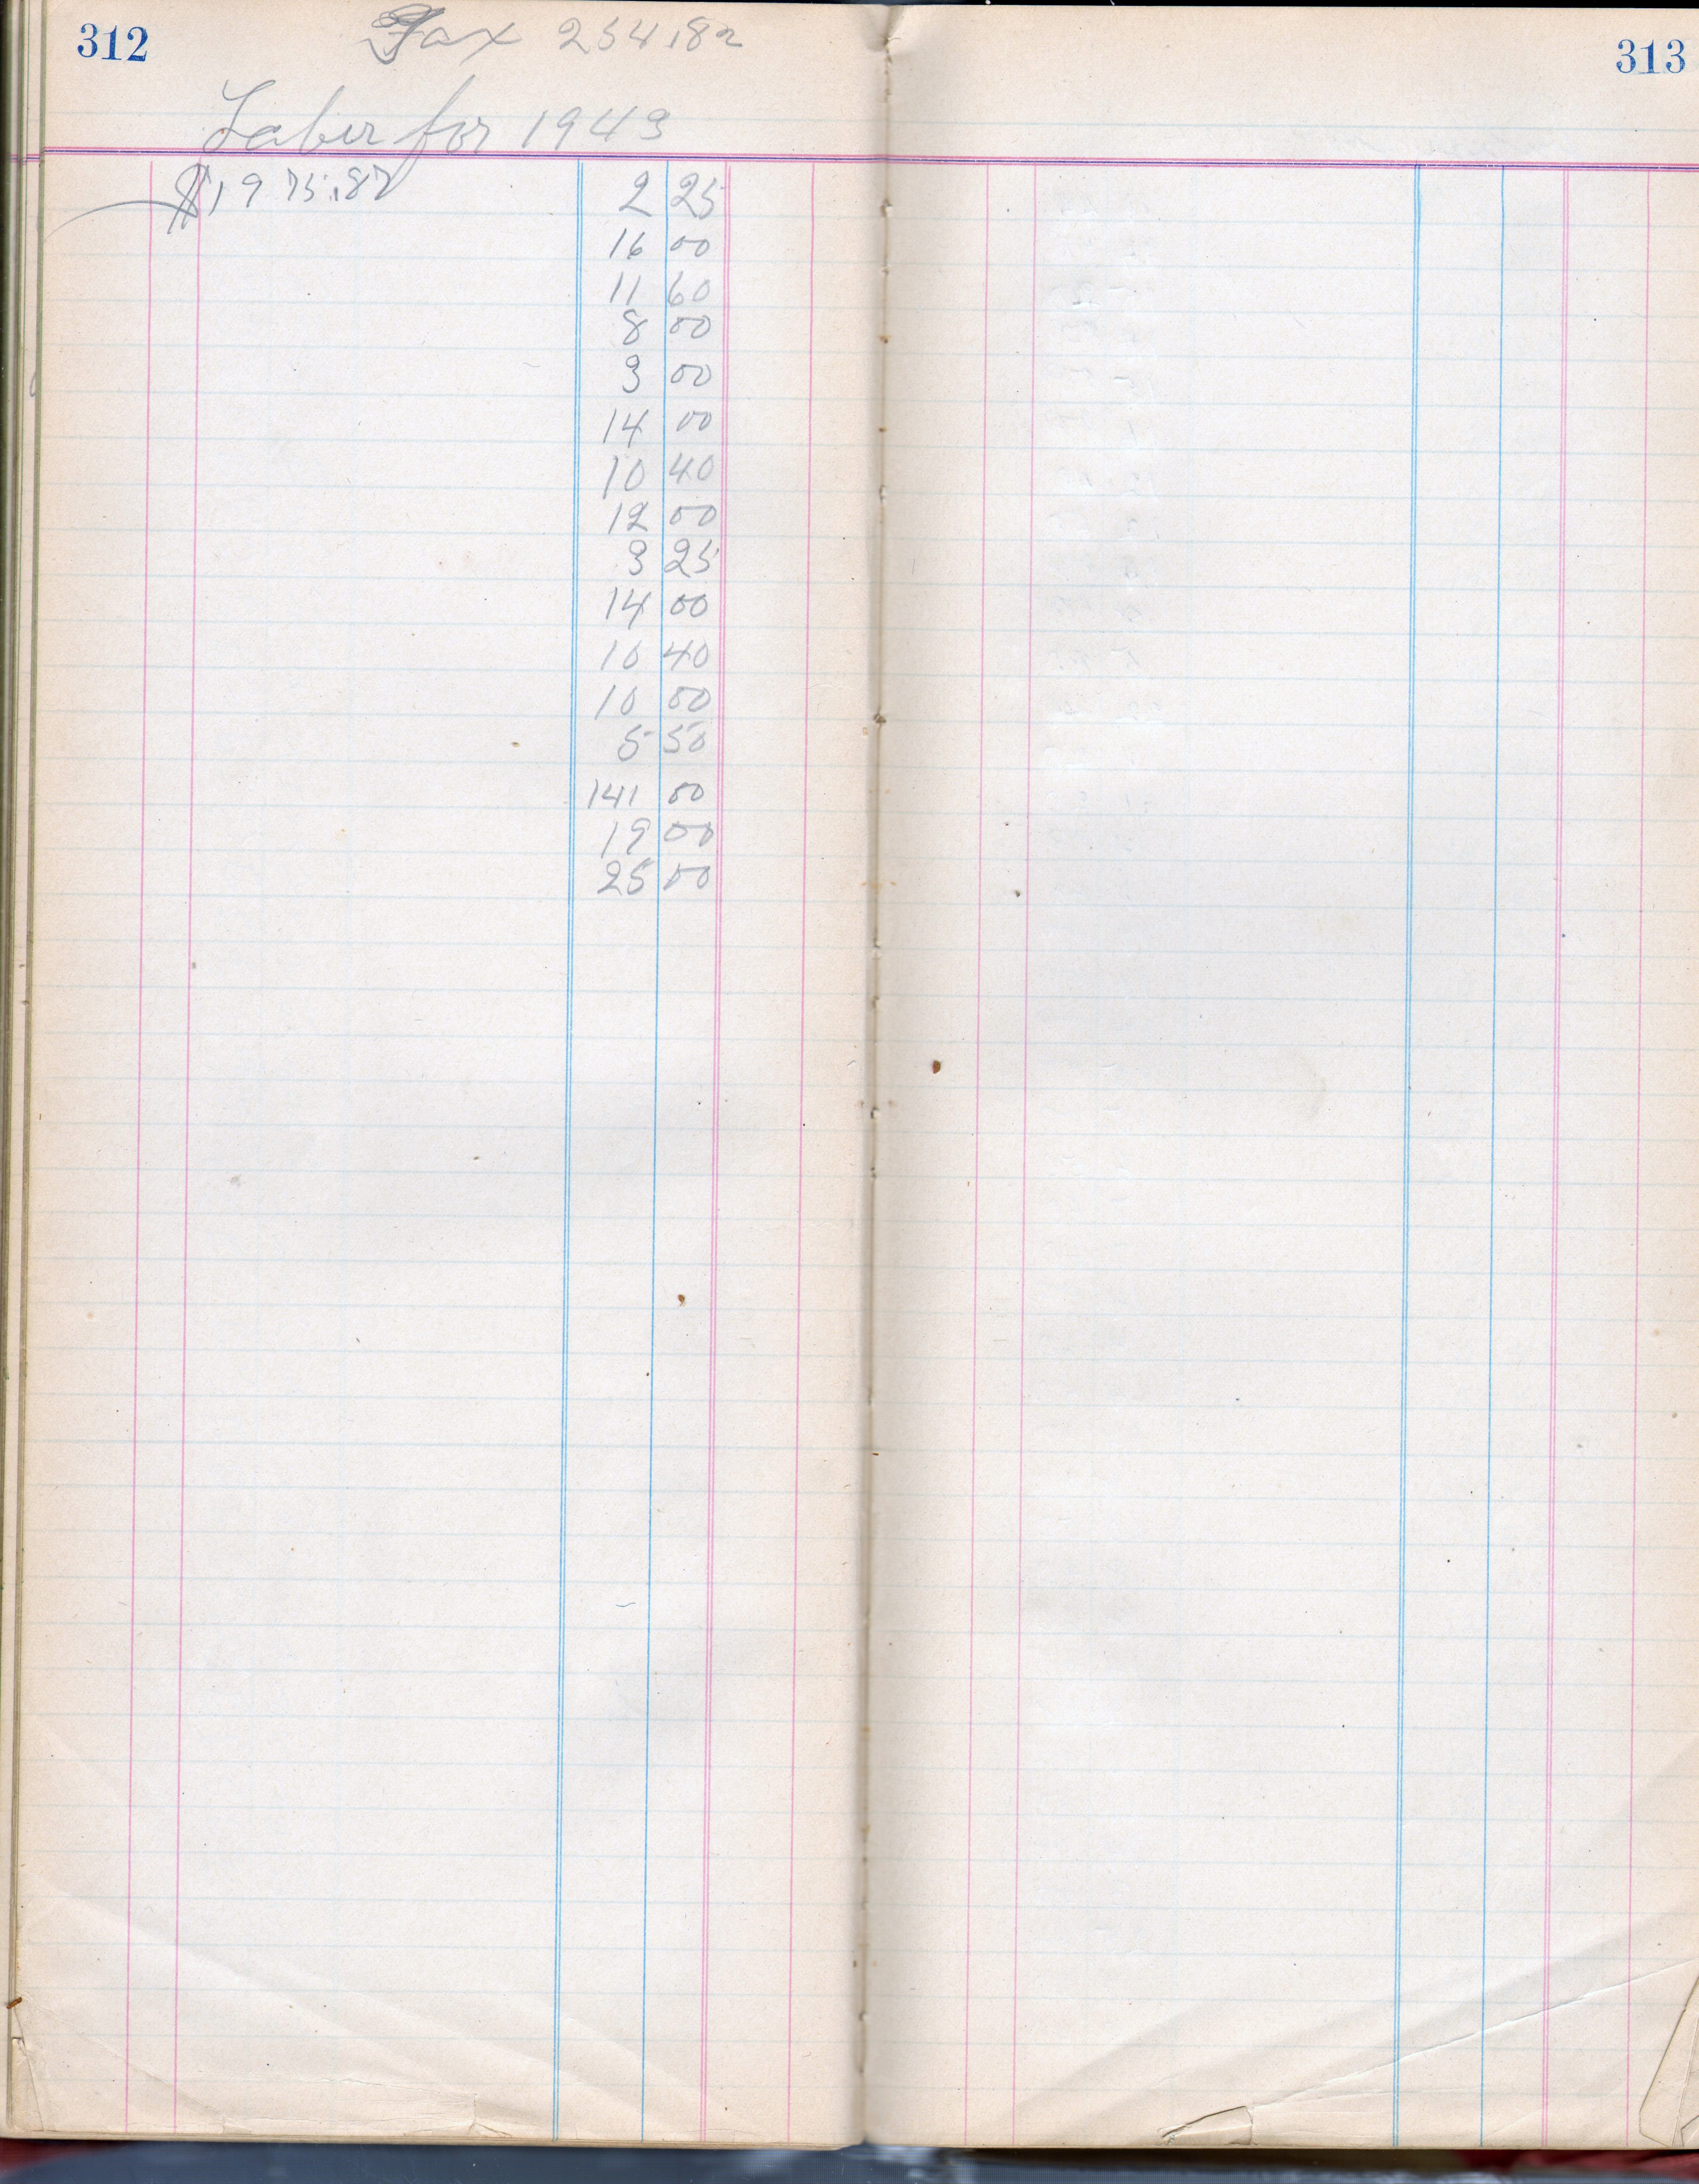 312
Tax 254.82
313
Laber for 1943
$1975.87
2 25
16 00
11 60
8 00
3 00
14 00
10 40
12 00
3 25
14 00
10 40
10 00
5 50
141 00
19 00
25 00